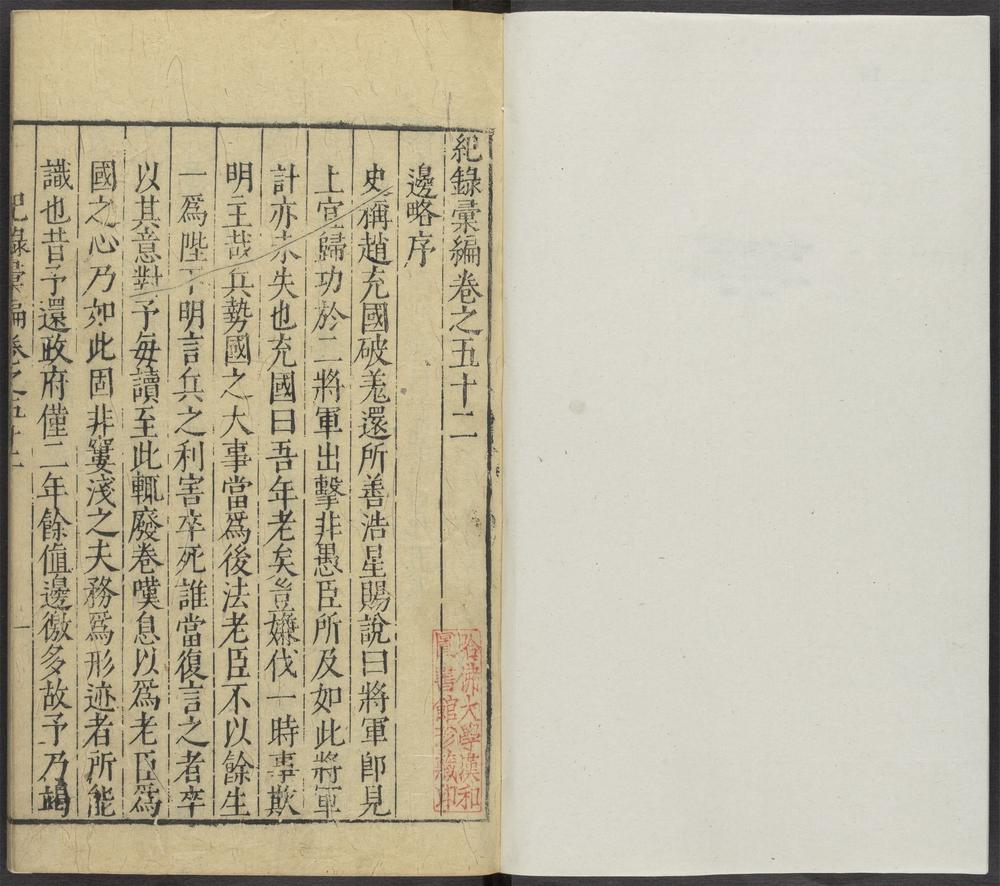 紀錄彙編卷之五十二
邊略序
史稱趙充國破羌還所善浩星賜說曰將軍卽見
上宜歸功於二將軍出擊非愚臣所及如此將軍
計亦未失也充國曰吾年老矣豈嫌伐一時事欺
明主哉兵勢國之大事當爲後法老臣不以餘生
一爲陛下明言兵之利害卒死誰當復言之者卒
以其意對予每讀至此輒廢卷嘆息以爲老臣爲
國之心乃如此固非窶淺之夫務爲形迹者所能
識也昔予還政府僅二年餘値邊徼多故予乃竭
紀錄彙編卷之五十二
一
哈佛大學漢和
圖書館珍藏印